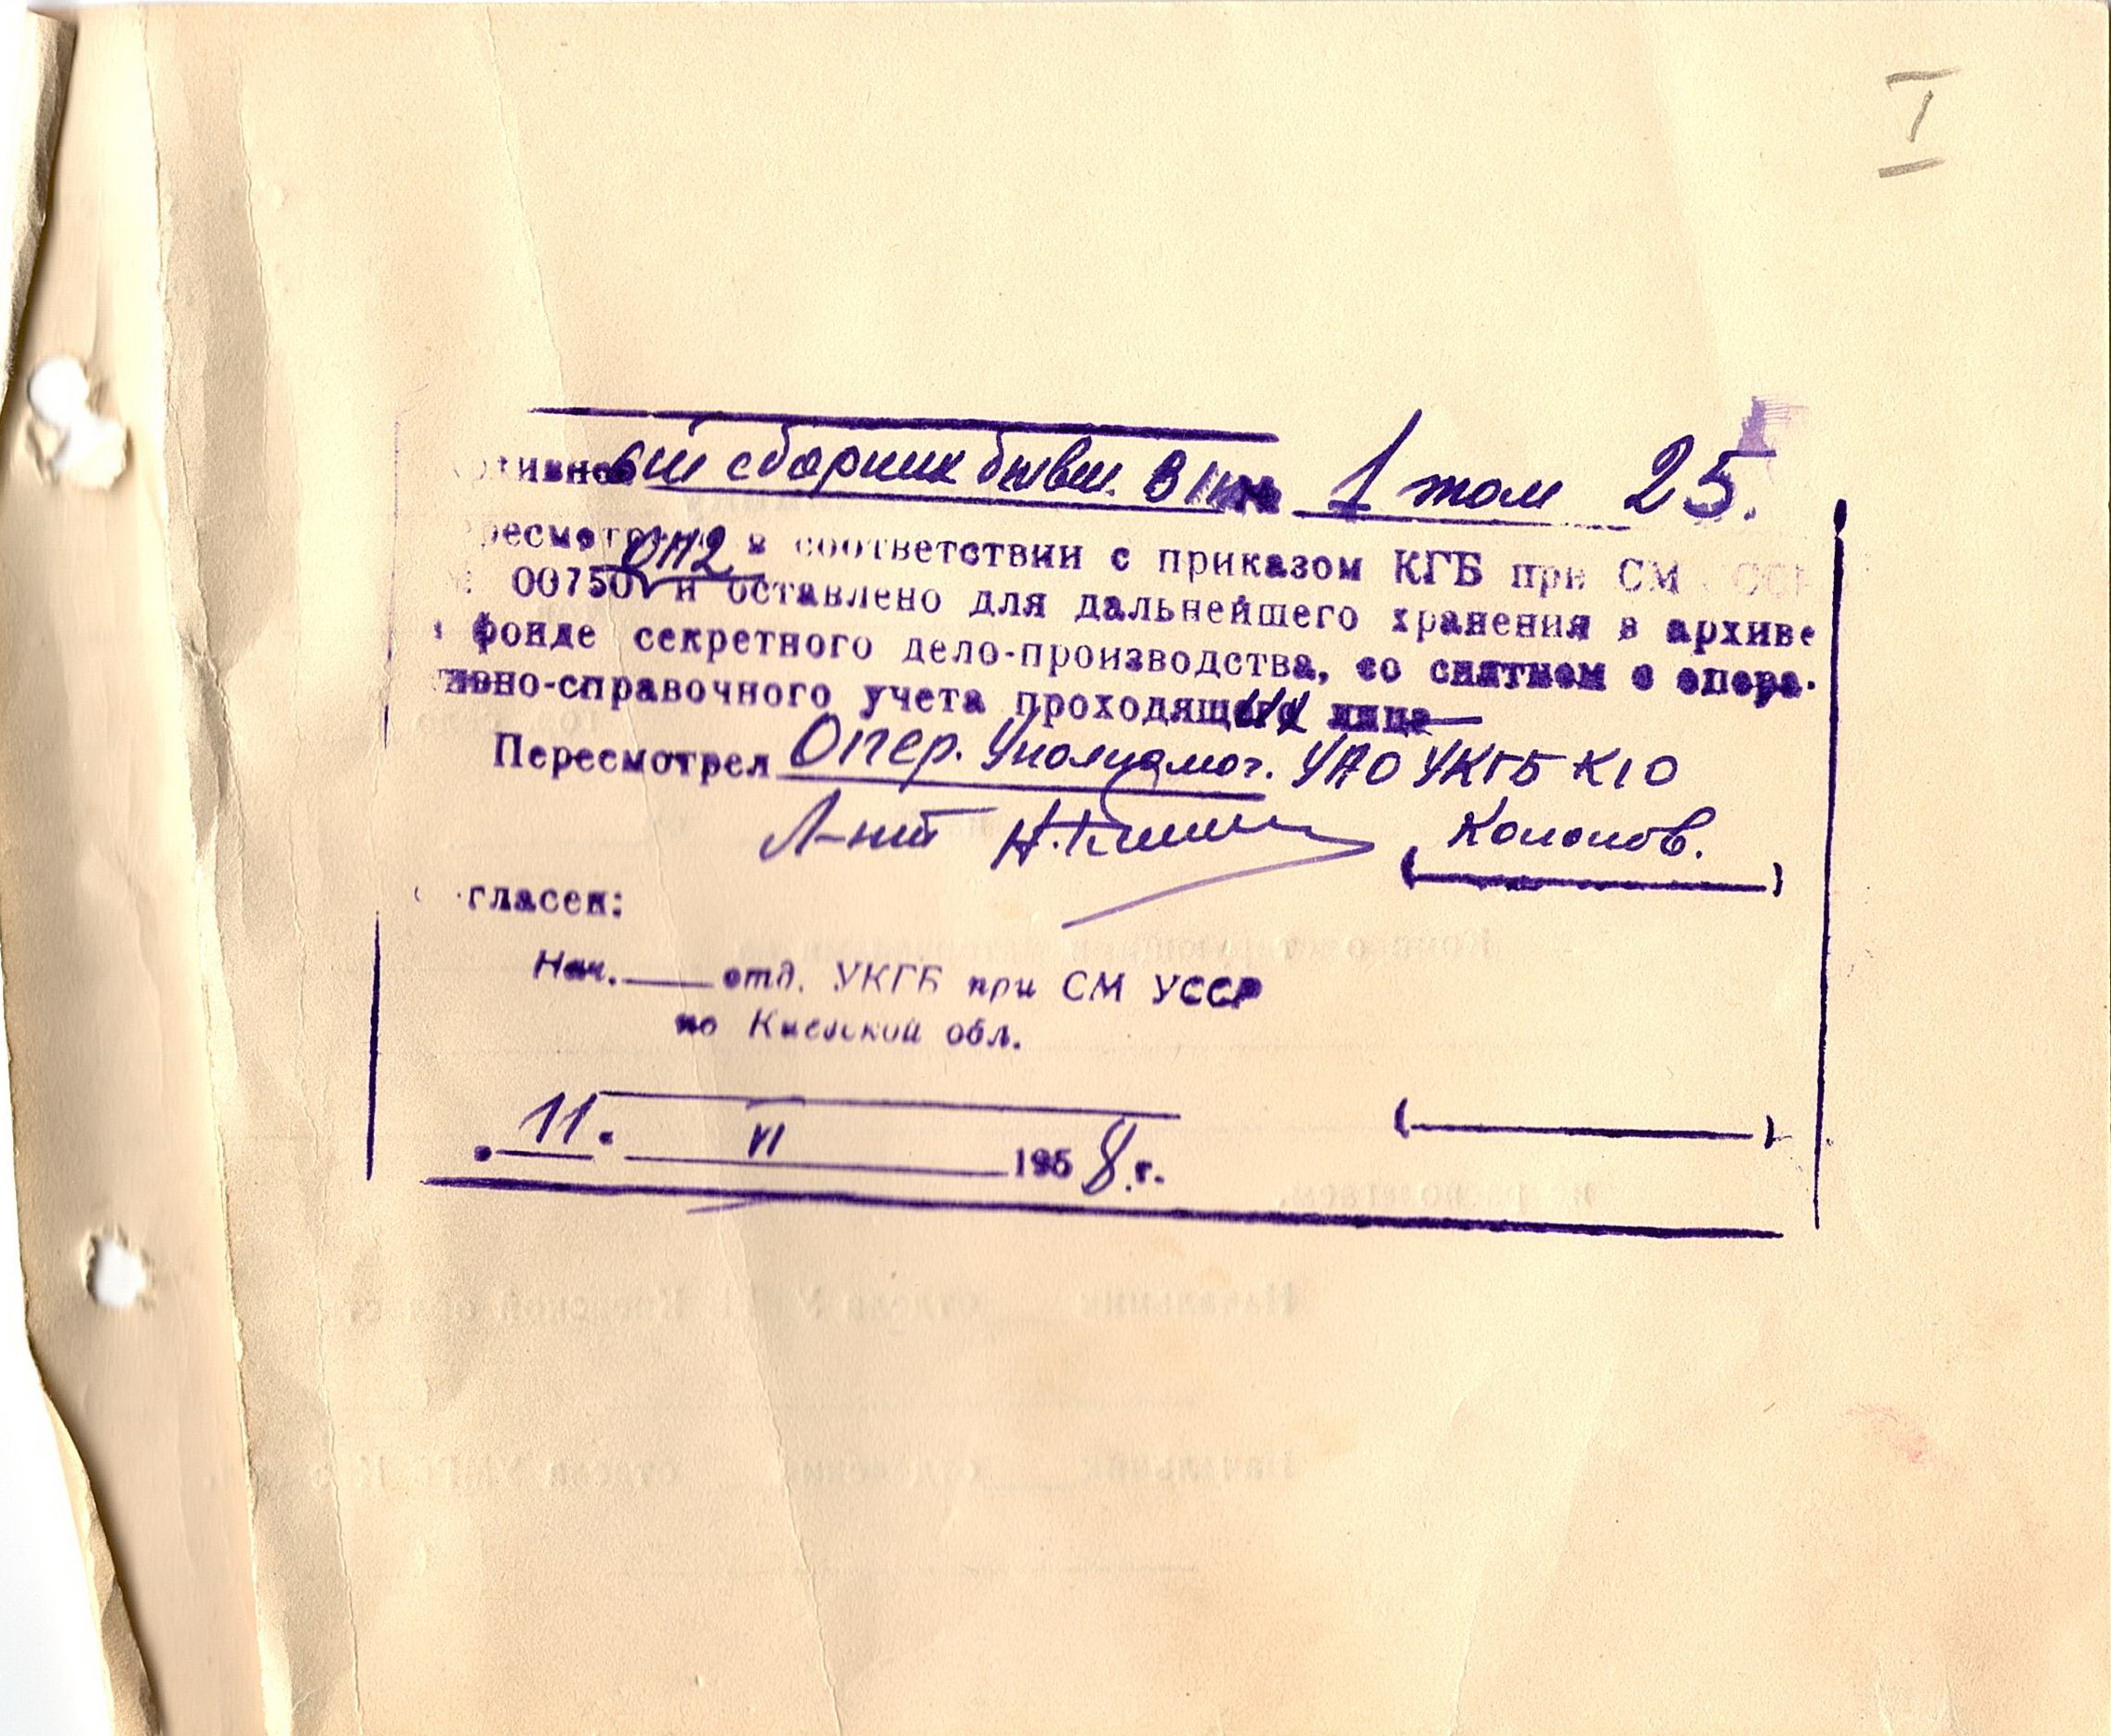 I
ый сборник бывш. 1 том 25.
ресмот ОН2 в соответствии с приказом КГБ при СМ ССС
00750 и оставлено для дальнейшего хранения в архиве
фонде секретного дело-производства, со снятием с опера-
тивно-справочного учета проходящих лица
Пересмотрел Опер. Уполномог. УАО УКГБ КО
Л-нт (Кононов.)
гласен:
Нач. ____ отд. УКГБ при СМ УССР
по Киевской обл.
(____)
„11" VI 1958 г.